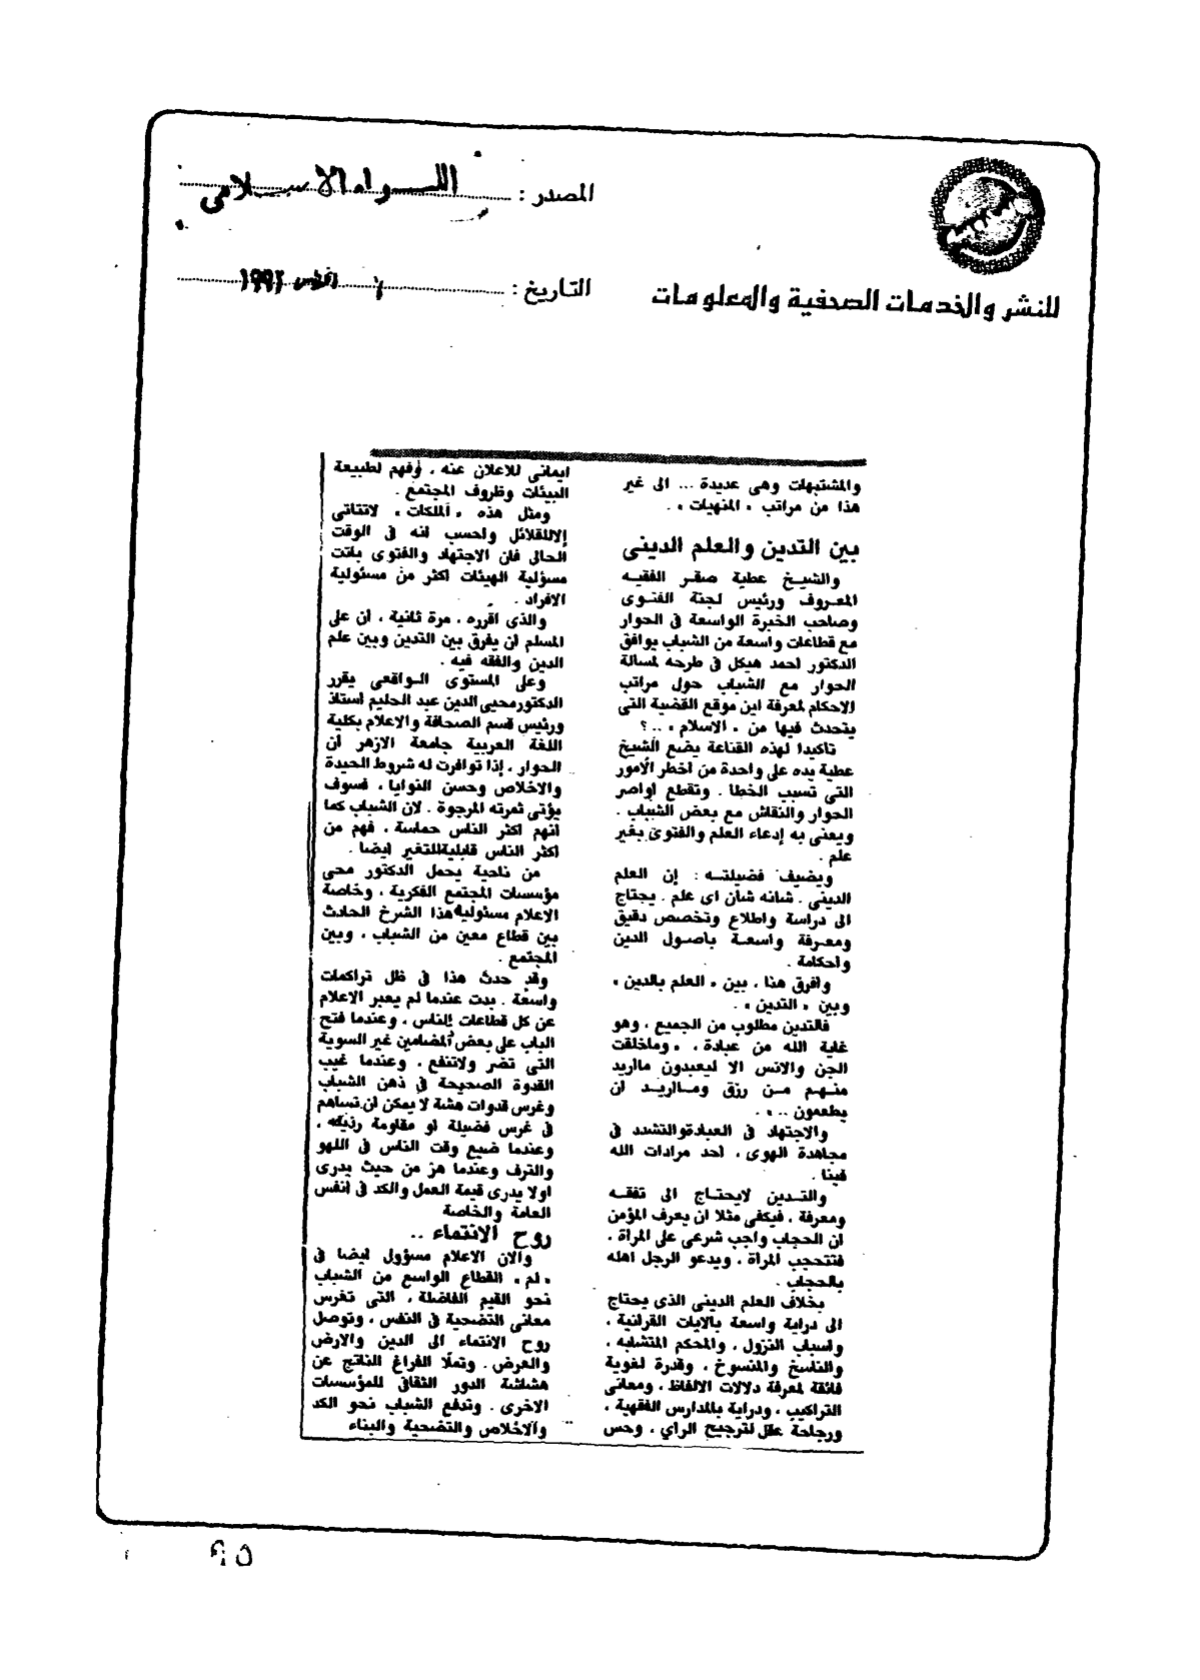 المصدر : اللـواء الاسـلامى
التاريخ : ١٩٩٢
للنشر والخدمات الصحفية والمعلومات
والمشتبهات وهى عديدة ... الى غير
هذا من مراتب « المنهيات » .
بين التدين والعلم الدينى
والشيـخ عطية صقـر الفقيـه
المعـروف ورئيس لجنة الفتـوى
وصاحب الخبرة الواسعة فى الحوار
مع قطاعات واسعة من الشباب يوافق
الدكتور احمد هيكل فى طرحه لمسالة
الحوار مع الشباب حول مراتب
الاحكام لمعرفة اين موقع القضية التى
يتحدث فيها من « الاسلام » ..؟
تاكيدا لهذه القناعة يضع الشيخ
عطية يده على واحدة من اخطر الأمور
التى تسبب الخطا . وتقطع اواصر
الحوار والنقاش مع بعض الشباب .
ويعنى به إدعاء العلم والفتوى بغير
علم .
ويضيف فضيلتـه : إن العلم
الدينى . شانه شأن اى علم . يحتاج
الى دراسة واطلاع وتخصص دقيق
ومعـرفة واسعـة باصـول الدين
واحكامة .
وافرق هنا ، بين « العلم بالدين »
وبين « التدين » .
فالتدين مطلوب من الجميع ، وهو
غاية الله من عبادة ، « وماخلقت
الجن والانس الا ليعبدون مااريد
منـهـم مـن رزق ومـااريـد ان
يطعمون .. » .
والاجتهاد فى العبادةوالتشدد فى
مجاهدة الهوى ، احد مرادات الله
فينا .
والتـدين لايحتـاج الى تفقـه
ومعرفة ، فيكفى مثلا ان يعرف المؤمن
ان الحجاب واجب شرعى على المرأة ،
فتتحجب المرأة ، ويدعو الرجل اهله
بالحجاب .
بخلاف العلم الدينى الذى يحتاج
الى دراية واسعة بالايات القرآنية ،
واسباب النزول ، والمحكم المتشابه ،
والناسخ والمنسوخ ، وقدرة لغوية
فائقة لمعرفة دلالات الالفاظ ، ومعانى
التراكيب ، ودراية بالمدارس الفقهية ،
ورجاحة عقل لترجيح الراي ، وحس
ايمانى للاعلان عنه ، وفهم لطبيعة
البيئات وظروف المجتمع .
ومثل هذه « الملكات » لاتتاتى
إلاللقلائل ولحسب انه فى الوقت
الحالى فان الاجتهاد والفتوى باتت
مسؤلية الهيئات اكثر من مسئولية
الافراد .
والذى اقرره ، مرة ثانية ، ان على
المسلم ان يفرق بين التدين وبين علم
الدين والفقه فيه .
وعلى المستوى الـواقعى يقرر
الدكتورمحيى الدين عبد الحليم استاذ
ورئيس قسم الصحافة والاعلام بكلية
اللغة العربية جامعة الازهر أن
الحوار ، إذا توافرت له شروط الحيدة
والاخلاص وحسن النوايا ، فسوف
يؤتى ثمرته المرجوة . لان الشباب كما
انهم اكثر الناس حماسة ، فهم من
اكثر الناس قابليةللتغير ايضا .
من ناحية يحمل الدكتور محى
مؤسسات المجتمع الفكرية ، وخاصة
الاعلام مسئوليةهذا الشرخ الحادث
بين قطاع معين من الشباب ، وبين
المجتمع .
وقد حدث هذا فى ظل تراكمات
واسعة . بدت عندما لم يعبر الاعلام
عن كل قطاعات الناس ، وعندما فتح
الباب على بعض المضامين غير السوية
التى تضر ولاتنفع ، وعندما غيب
القدوة الصحيحة فى ذهن الشباب
وغرس قدوات هشة لا يمكن ان تساهم
فى غرس فضيلة او مقاومة رذيلة ،
وعندما ضيع وقت الناس فى اللهو
والترف وعندما هز من حيث يدرى
اولا يدرى قيمة العمل والكد فى انفس
العامة والخاصة
روح الانتماء ..
والان الاعلام مسؤول ايضا فى
« لم » القطاع الواسع من الشباب
نحو القيم الفاضلة ، التى تغرس
معانى التضحية فى النفس ، وتوصل
روح الانتماء الى الدين والارض
والعرض . وتملأ الفراغ الناتج عن
هشاشة الدور الثقافى للمؤسسات
الاخرى . وتدفع الشباب نحو الكد
والاخلاص والتضحية والبناء